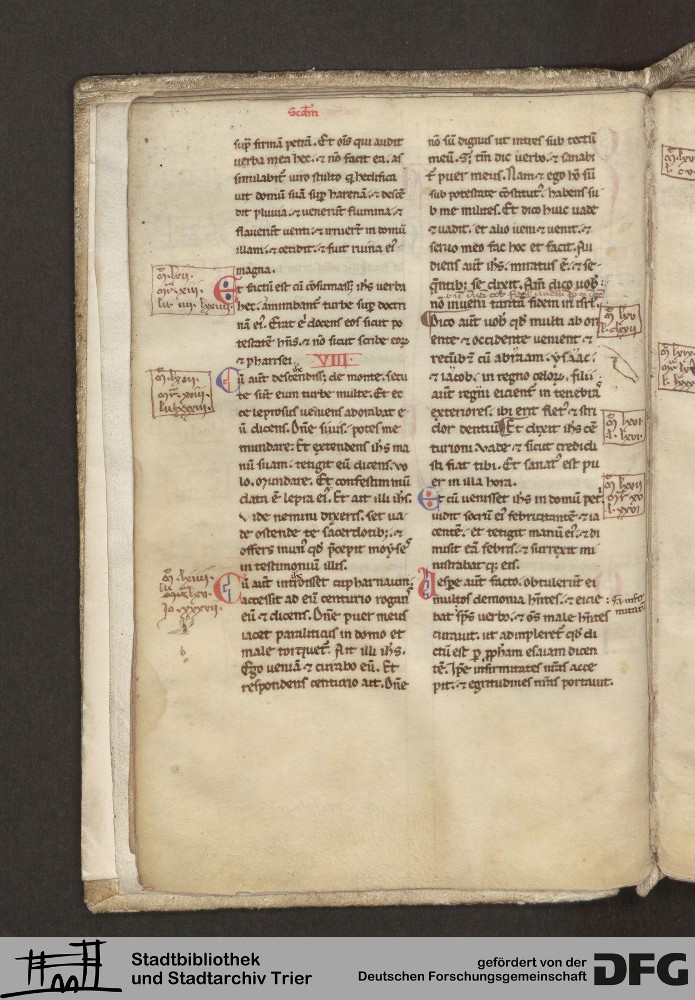 Scdm
sup firmā petrā. Et oīs qui audit
verba mea hec. ⁊ nō facit ea. as
similabit᷑ viro stulto q̇ hedifica
vit domū suā sup harenā. ⁊ descē
dit pluvia. ⁊ venerūt flumina. ⁊
flaverūt venti. ⁊ irruerūt in domū
illam. ⁊ cecidit. ⁊ fuit ruina ei᷒
magna.
Et factū est cū cōsumass; ihs verba
hec. āmirabant᷑ turbe sup doctri
nā ei᷒. Erat .n. docens eos sicut po
testatē hn̄s. ⁊ nō sicut scribe eoꝝ
⁊ pharisei. VIII.
Cū aūt descendiss; de monte. secu
te sūt eum turbe multe. Et ec
ce leprosus veniens adorabat e
ū dicens. Dn̄e si vis. potes me
mundare. Et extendens ihs ma
nū suam. tetigit eū dicens. vo
lo. mundare. Et confestim mū
data ē lepra ei᷒. Et ait illi ihs.
vide nemini dixeris. set va
de ostende te sacerdotib;. ⁊
offers mun᷒ qd p̄cepit moyses
in testimoniū illis.
Cū aūt introisset capharnaum.
accessit ad eū centurio rogans
eū ⁊ dicens. Dn̄e puer meus
iacet paraliticus in domo et
male torquet᷑. Ait illi ihs.
Ego veniā ⁊ curabo eū. Et
respondens centurio ait. Dn̄e
nō sū dignus ut intres sub tectū
meū. S; tm̄ dic verbo. ⁊ sanabi
t᷑ puer meus. Nam ⁊ ego hō sū
sub potestate cōstitut᷒. habens su
b me milites. Et dico huic vade
⁊ vadit. et alio veni ⁊ venit. ⁊
servo meo fac hoc et facit. Au
diens aūt ihs. miratus ē. ⁊ se
q̄ntib; se dixit. Am̄ dico vob.
nō inveni tantā fidem in isrl.
Dico aūt vob qd multi ab ori
ente ⁊ occidente venient ⁊
recūbēt cū abraam. ysaac.
⁊ iacob. in regno celoꝝ. filii
aūt regni eicient᷑ in tenebras
exteriores. ibi erit flet᷒ ⁊ stri
dor dentiū. Et dixit ihs cē
turioni. vade ⁊ sicut credidi
sti fiat tibi. Et sanat᷒ est pu
er in illa hora.
Et cū venisset ihs in domū petri
vidit socrū ei᷒ febricitantē ⁊ ia
centē. et tetigit manū ei᷒. ⁊ di
misit eā febris. ⁊ surrexit ⁊ mi
nistrabat eis.
Vespe aūt facto. obtulerūt ei
multos demonia hn̄tes. ⁊ eicie
bat sp̄s verbo. ⁊ oēs male hn̄tes
curavit. ut adimpleret᷑ qd di
ctū est p ppham esaiam dicen
tē. Ipse infirmitates nr̄as acce
pit. ⁊ egritudines nr̄as portavit.
Stadtbibliothek
und Stadtarchiv Trier
gefördert von der
Deutschen Forschungsgemeinschaft
DFG